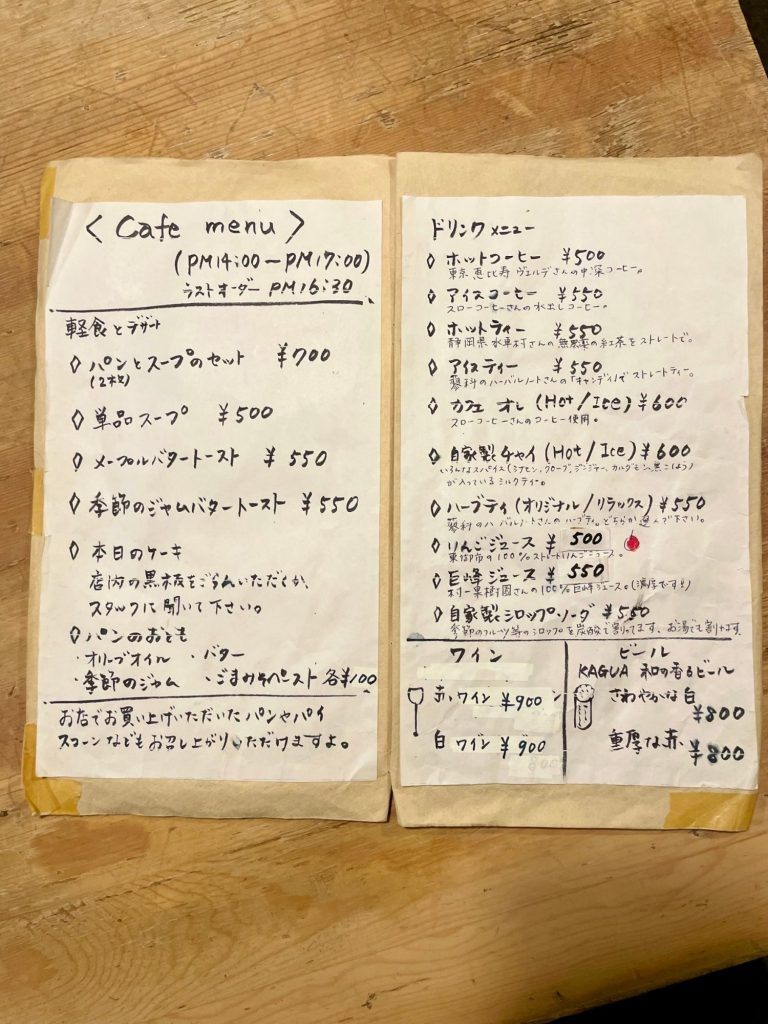 〈 Cafe menu 〉
(PM14:00〜PM17:00)
ラストオーダー PM16:30
軽食とデザート
◇ パンとスープのセット ¥700
(2枚)
◇ 単品スープ ¥500
◇ メープルバタートースト ¥550
◇ 季節のジャムバタートースト ¥550
◇ 本日のケーキ
店内の黒板をごらんいただくか、
スタッフに聞いて下さい。
◇ パンのおとも
・オリーブオイル ・バター
・季節のジャム ・ごまみそペースト 各¥100
お店でお買い上げいただいたパンやパイ
スコーンなどもお召し上がりいただけますよ。
ドリンクメニュー
◇ ホットコーヒー ¥500
東京恵比寿 ヴェルデさんの中深コーヒー。
◇ アイスコーヒー ¥550
スローコーヒーさんの水出しコーヒー。
◇ ホットティー ¥550
静岡県水車村さんの無農薬の紅茶をストレートで。
◇ アイスティー ¥550
蓼科のハーバルノートさんの「キャンディ」でストレートティー。
◇ カフェオレ (Hot/Ice) ¥600
スローコーヒーさんのコーヒー使用。
◇ 自家製チャイ (Hot/Ice) ¥600
いろんなスパイス(シナモン、クローブ、ジンジャー、カルダモン、黒こしょう)
が入っているミルクティー。
◇ ハーブティ (オリジナル/リラックス) ¥550
蓼科のハーバルノートさんのハーブティ。どちらか選んで下さい。
◇ りんごジュース ¥500
東御市の100%ストレートりんごジュース。
◇ 巨峰ジュース ¥550
村一果樹園さんの100%巨峰ジュース。(濃厚です!!)
◇ 自家製シロップソーダ ¥550
季節のフルーツ等のシロップを炭酸で割ってます。お湯でも割れます
ワイン
赤ワイン ¥900
白ワイン ¥900
ビール
KAGUA 和の香るビール
さわやかな白
¥800
重厚な赤
¥800